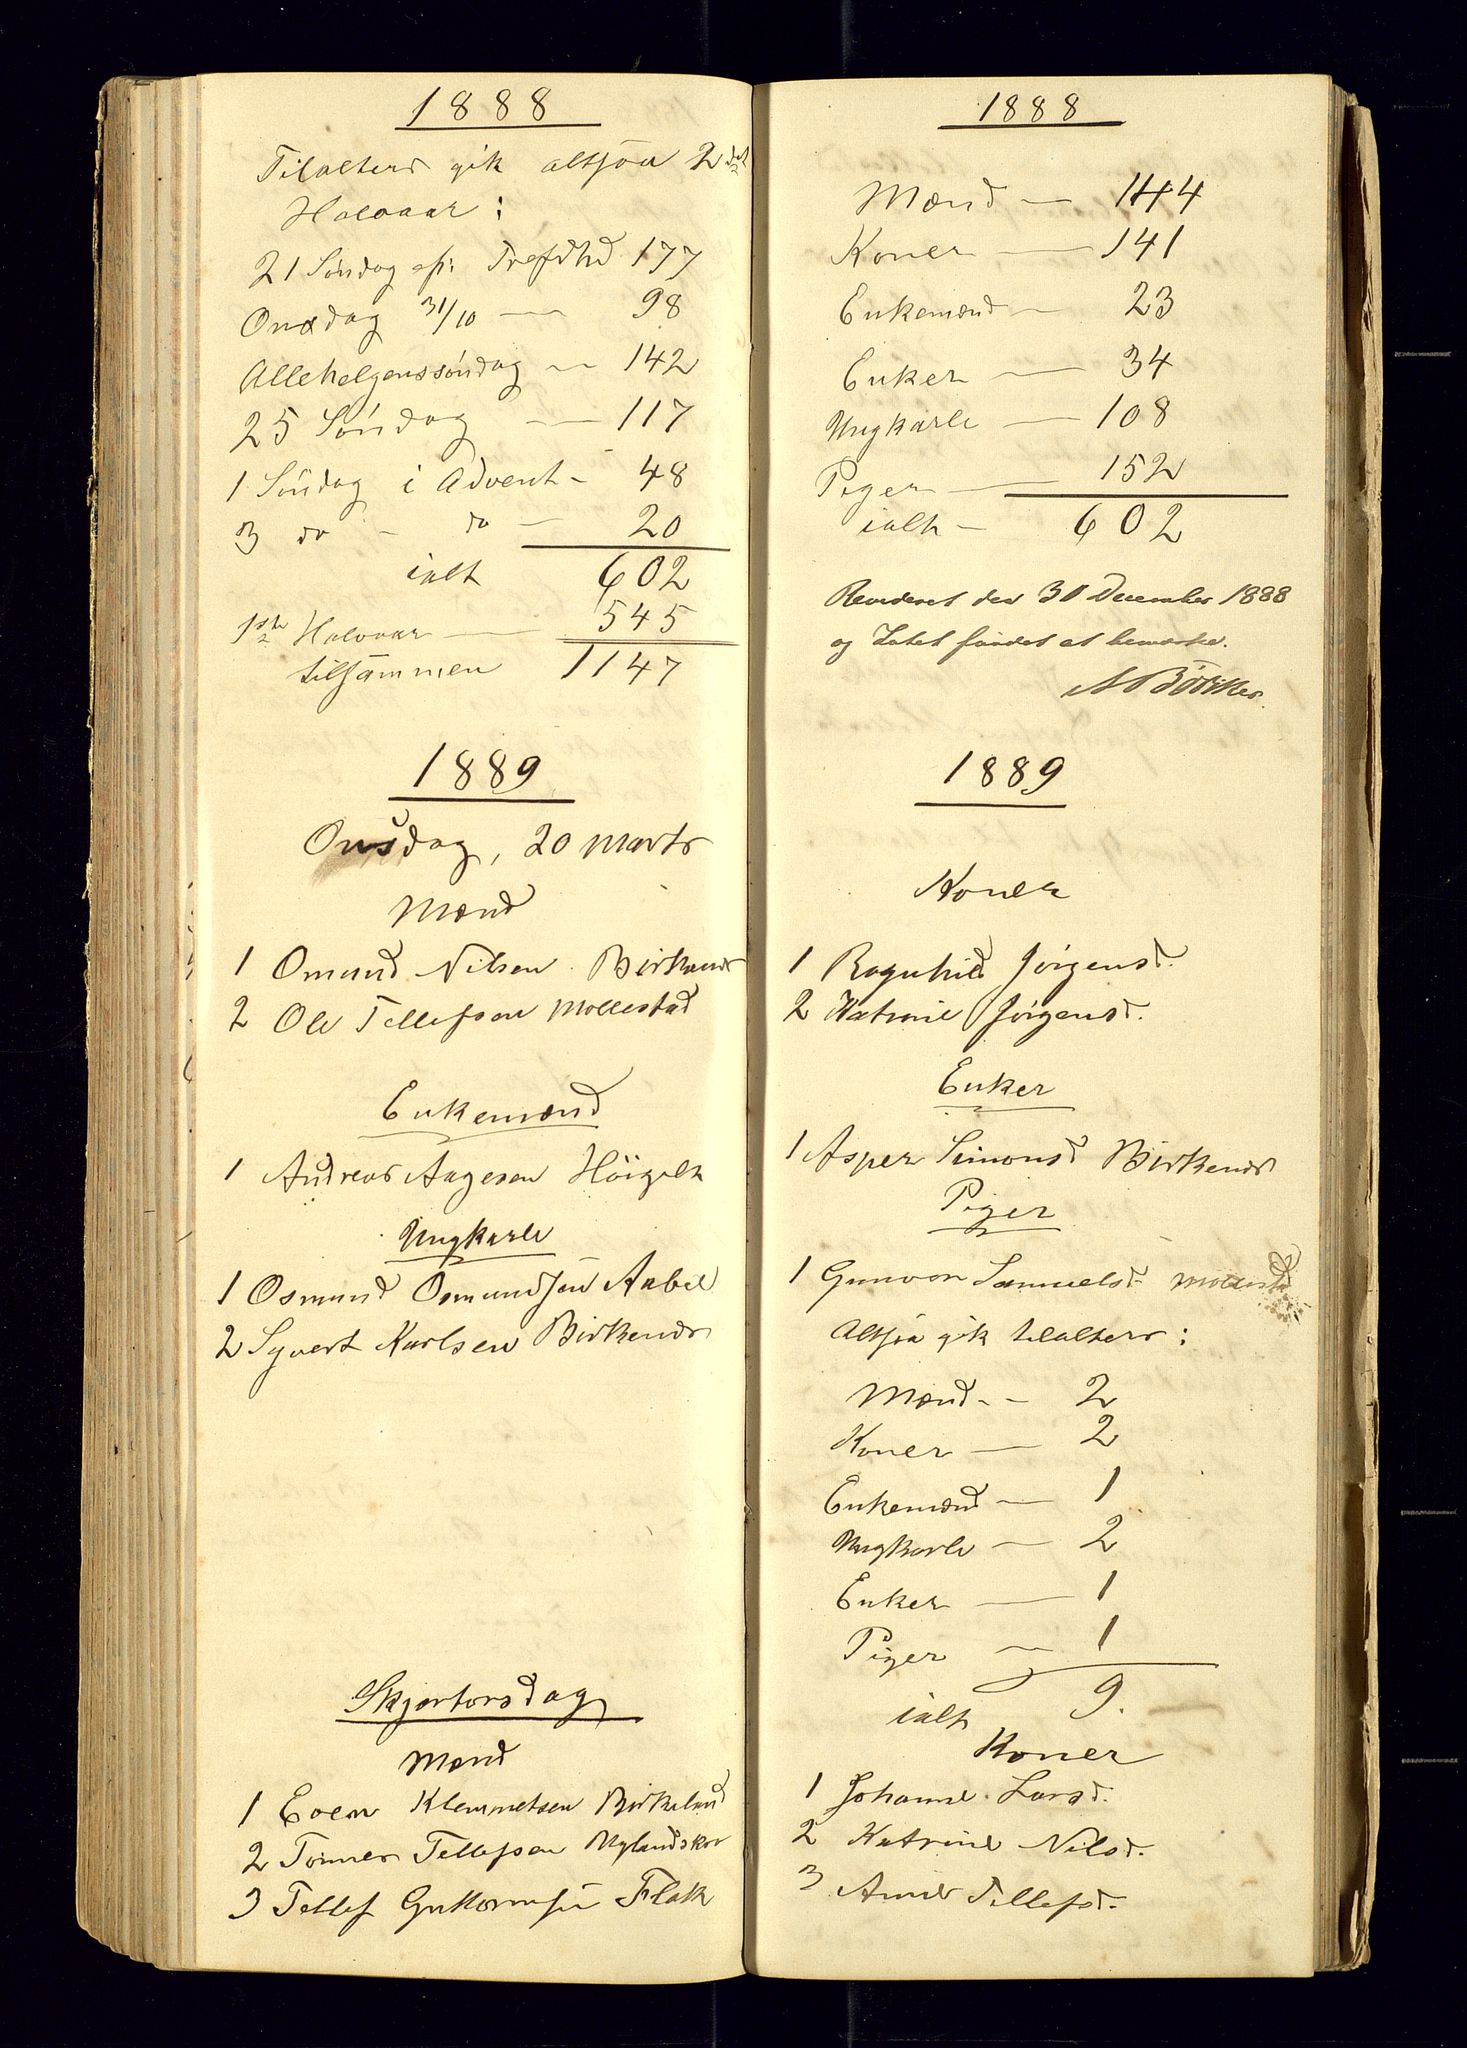 1888
Tilalters gik altsaa 2det
Halvaar:
21 Søndag eft. Trefdhd 177
Onsdag 31/10 — 98
Allehelgenssøndag — 142
25 Søndag — 117
1 Søndag i Advent - 48
3 do - do — 20
ialt 602
1ste Halvaar — 545
tilsammen 1147
1889
Onsdag, 20 Marts
Mænd
1 Omund Nilsen Birkenes
2 Ole Tellefsen Mollestad
Enkemænd
1 Andreas Aagesen Höigilt
Ungkarle
1 Osmund Osmundsen Aabel
2 Syvert Karlsen Birkenes
Skjærtorsdag
Mænd
1 Even Klemmetsen Birkeland
2 Tønnes Tellefsen Nylandskar
3 Tellef Guttormsen Flak
1888
Mænd — 144
Koner — 141
Enkemænd — 23
Enker — 34
Ungkarle — 108
Piger — 152
ialt — 602
Revideret den 30 December 1888
og Intet fundet at bemærke.
1889
Koner
1 Ragnhild Jörgensd.
2 Katrine Jörgensd.
Enker
1 Asper Simonsd Birkenes
Piger
1 Gunvor Samuelsd. Mollestad
Altsaa gik tilalters:
Mænd - - 2
Koner — 2
Enkemænd — 1
Ungkarle — 2
Enker — 1
Piger — 1
ialt 9.
Koner
1 Johanne Larsd.
2 Katrine Nilsd.
3 Anne Tellefsd.